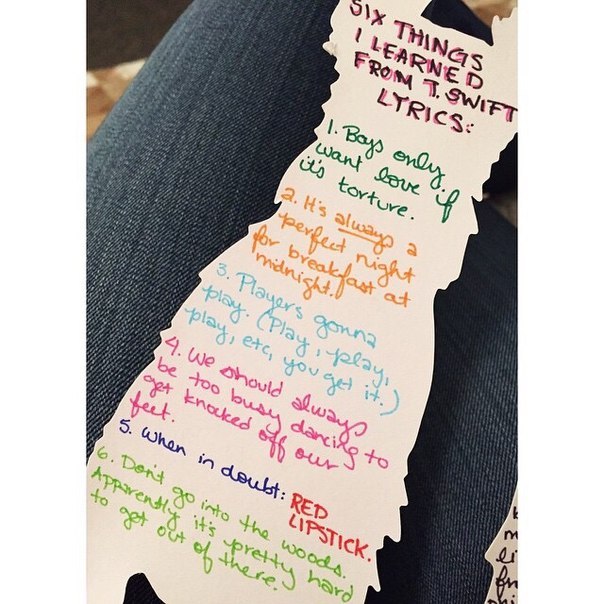 SIX THINGS
I LEARNED
FROM T. SWIFT
LYRICS:
1. Boys only
want love if
it's torture.
2. It's always a
perfect night
for breakfast at
midnight.
3. Players gonna
play. (Play, play,
play, etc, you get it.)
4. We should always
be too busy dancing to
get knocked off our
feet.
5. When in doubt: RED
LIPSTICK.
6. Don't go into the woods.
Apparently it's pretty hard
to get out of there.